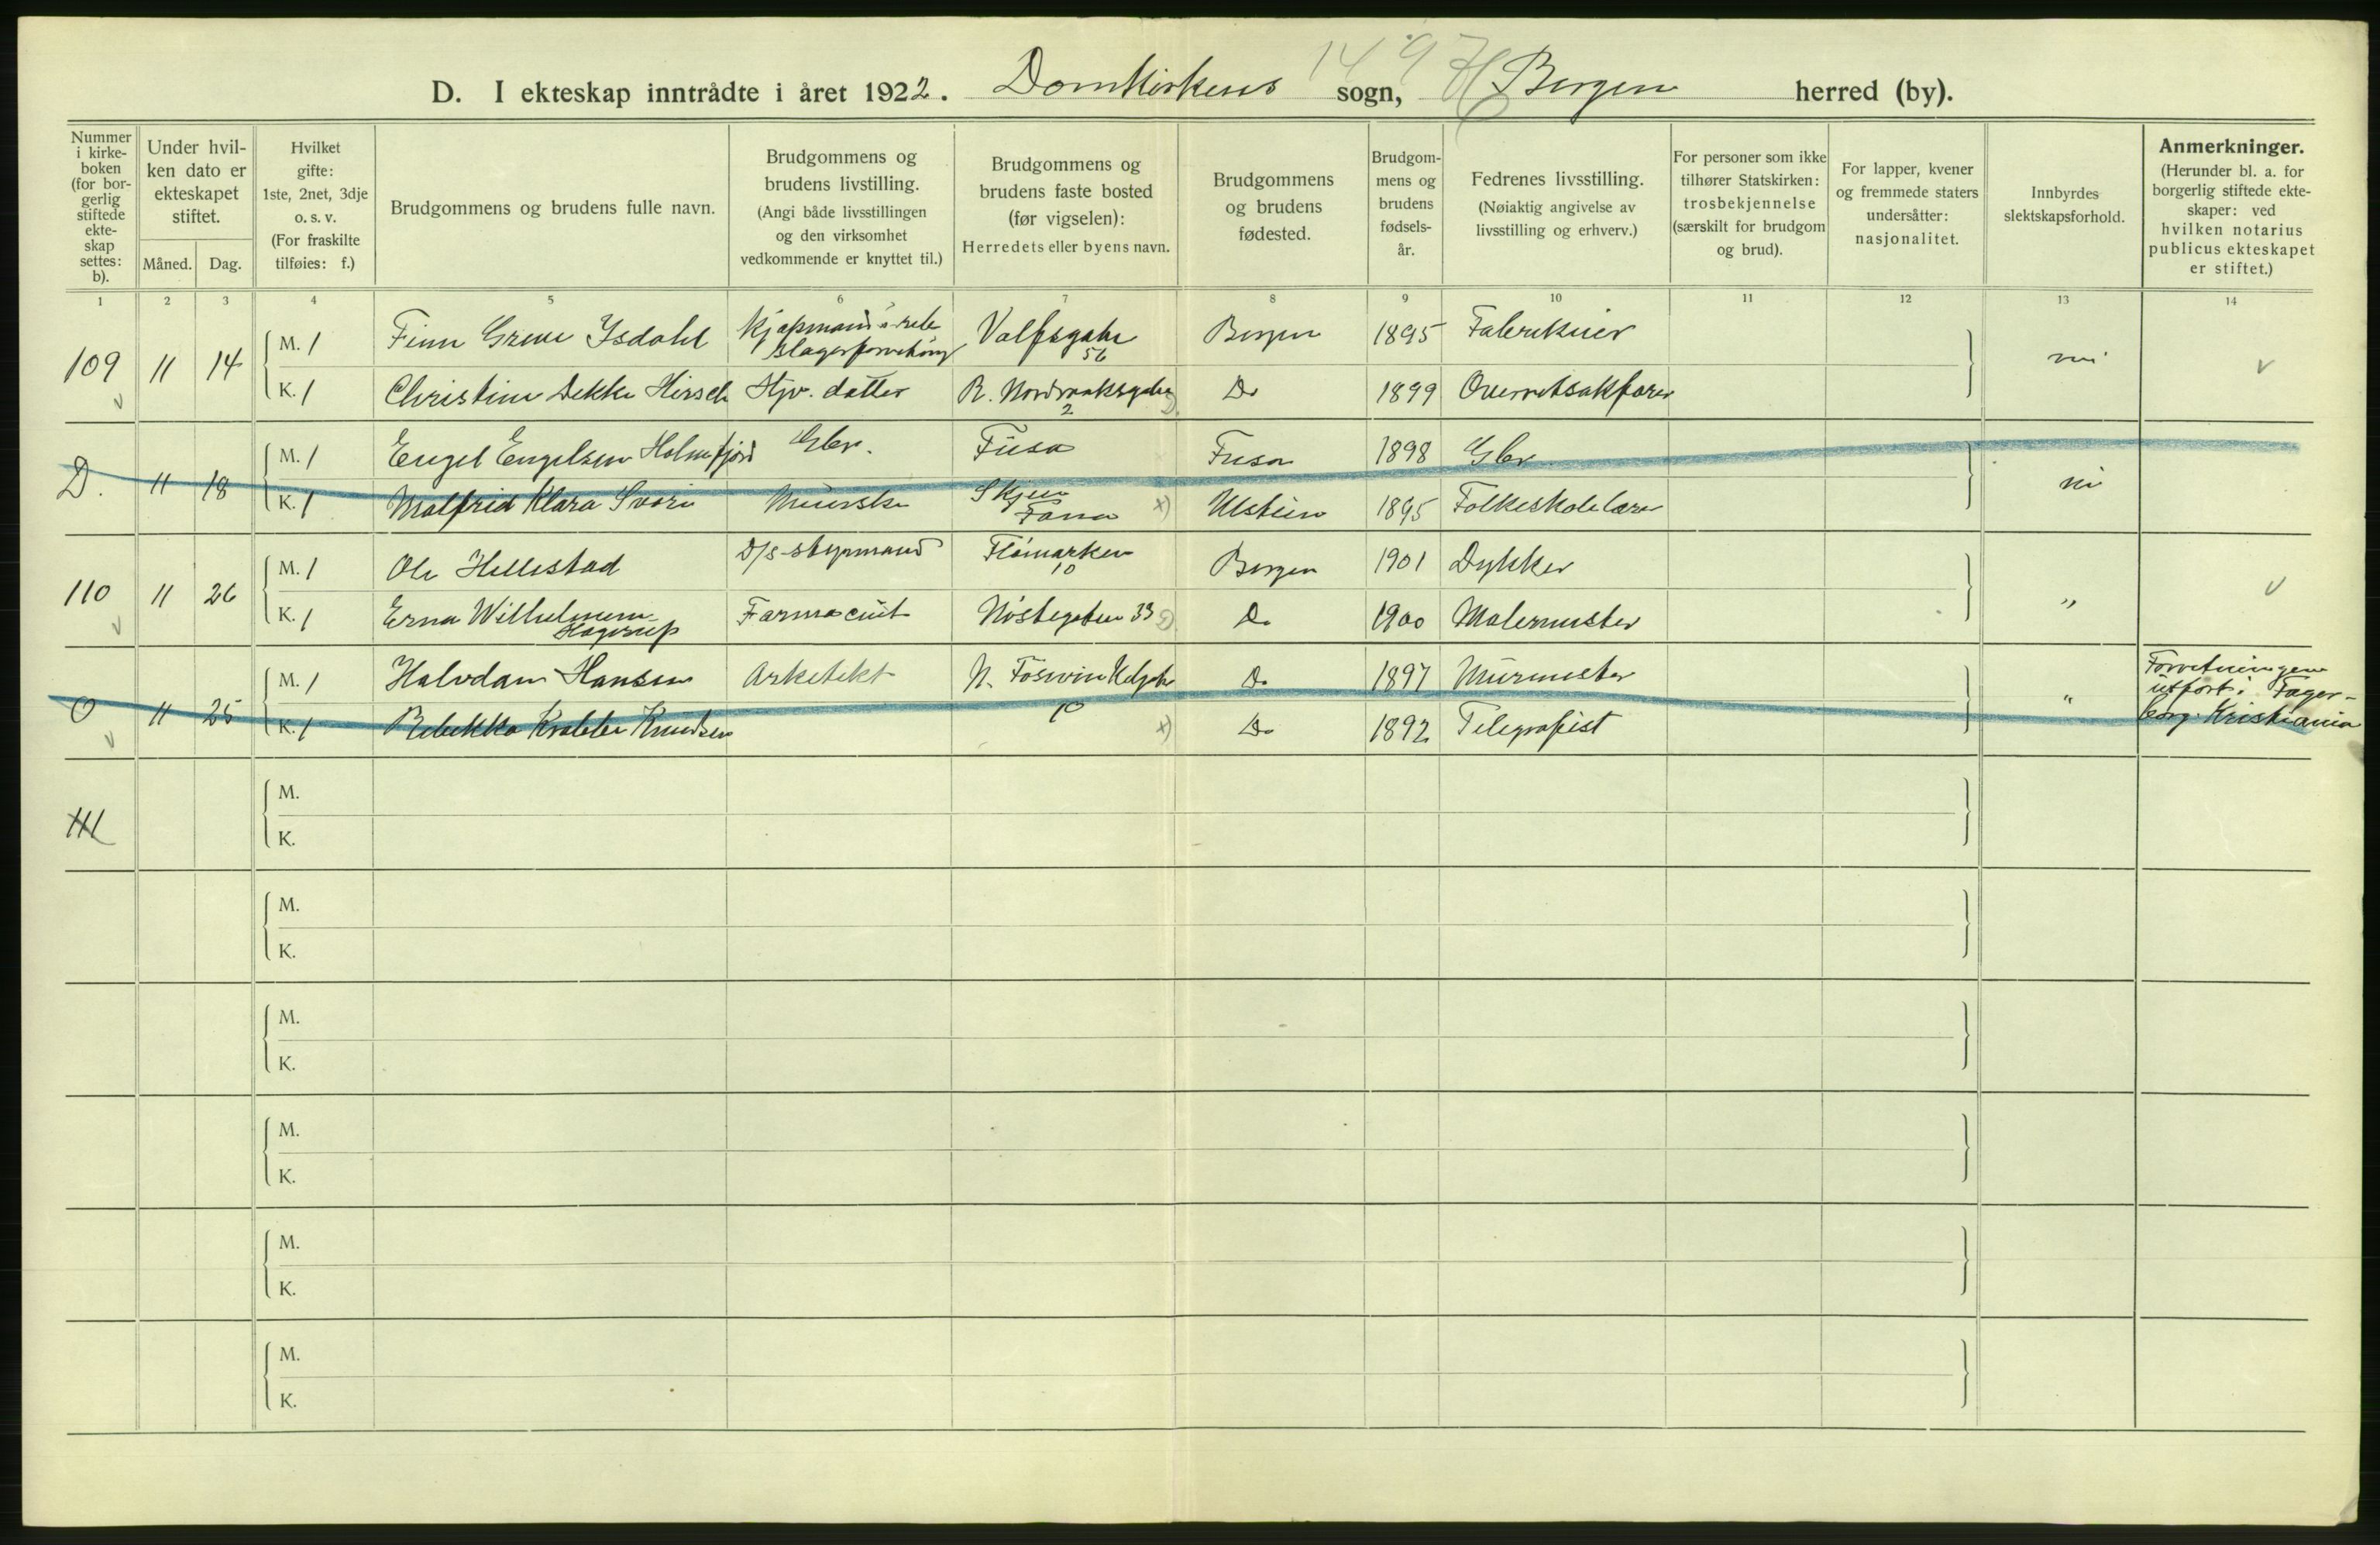 D. I ekteskap inntrådte i året 1922. Domkirkens sogn, Bergen herred (by).
Nummer i kirkeboken (for borgerlig stiftede ekteskap settes: b).
Under hvilken dato er ekteskapet stiftet.
Måned. Dag.
Hvilket gifte: 1ste, 2net, 3dje o. s. v. (For fraskilte tilføies: f.)
Brudgommens og brudens fulle navn.
Brudgommens og brudens livstilling. (Angi både livsstillingen og den virksomhet vedkommende er knyttet til.)
Brudgommens og brudens faste bosted (før vigselen): Herredets eller byens navn.
Brudgommens og brudens fødested.
Brudgommens og brudens fødselsår.
Fedrenes livsstilling. (Nøiaktig angivelse av livsstilling og erhverv.)
For personer som ikke tilhører Statskirken: trosbekjennelse (særskilt for brudgom og brud).
For lapper, kvener og fremmede staters undersåtter: nasjonalitet.
Innbyrdes slektskapsforhold.
Anmerkninger. (Herunder bl. a. for borgerlig stiftede ekteskaper: ved hvilken notarius publicus ekteskapet er stiftet.)
1 2 3 4 5 6 7 8 9 10 11 12 13 14
109 11 14 M. 1 Finn Greve Isdahl Bergen 1895
K. 1 Christine Dekke Hirsch Hjv. datter R. Nordraaksgaten 2 Do 1899 Overretsakfører
D. 11 18 M. 1 Engel Engelsen Holmefjord Gbr. Fusa Fusa 1898 Gbr
K. 1 Malfrid Klara Svori Skjen Fana Ulstein 1895 Folkeskolelærer
ni
110 11 26 M. 1 Ole Hellestad D/S-styrmand Flömarken 10 Bergen 1901 Dykker
K. 1 Erna Wilhelmine Hagerup Farmaceut Nöstegaten 33 Do 1900 Malermester
"
O 11 25 M. 1 Halvdan Hansen Arkitekt Do 1897 Mürmester
K. 1 Rebekka Krabbe Knudsen 10 Do 1892 Telegrafist
"
Forretningen utfört i Fagerborg. Kristiania
111 M.
K.
M.
K.
M.
K.
M.
K.
M.
K.
M.
K.